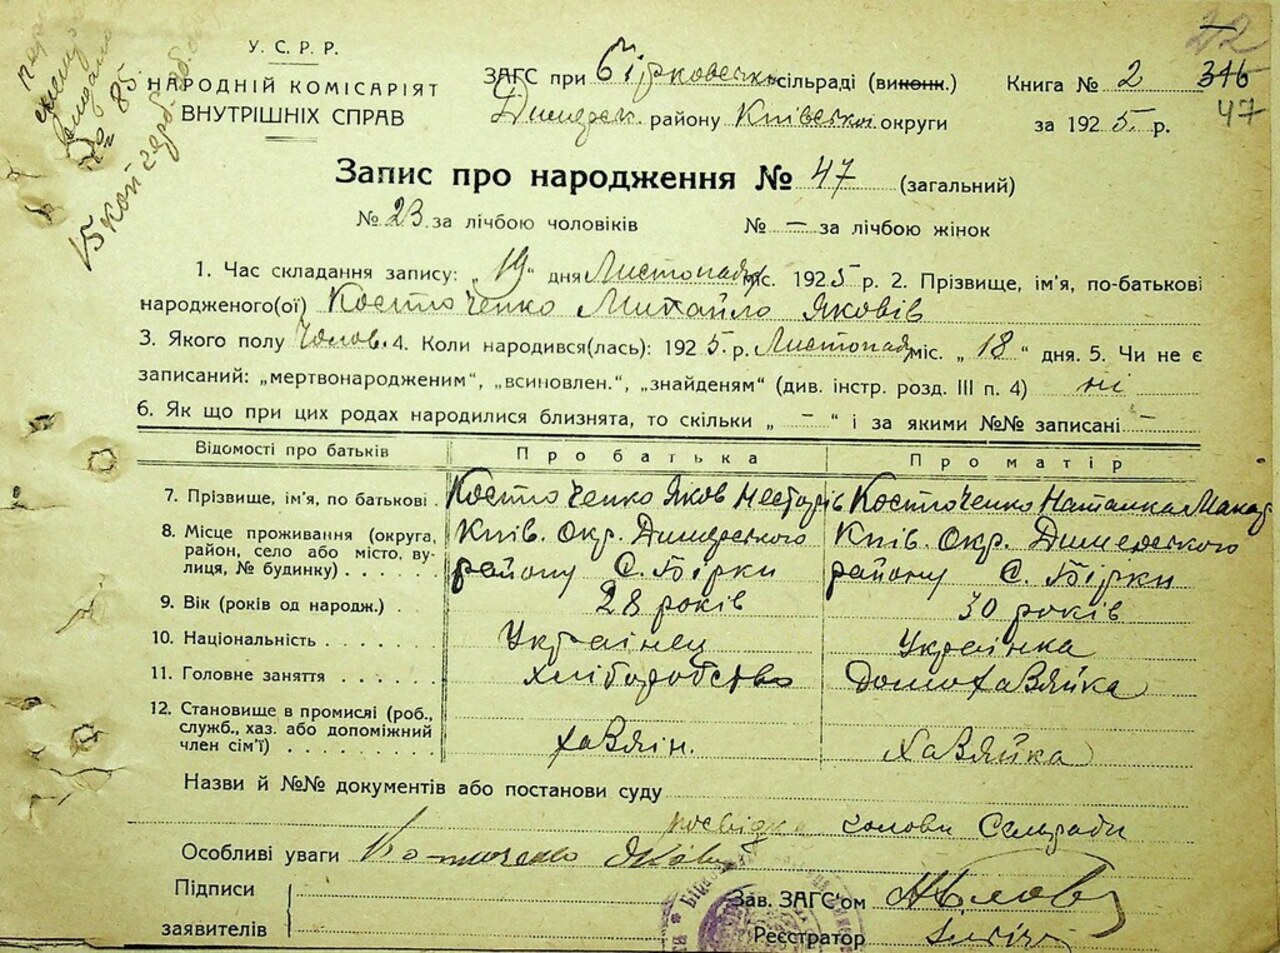 У. С. Р. Р.
НАРОДНІЙ КОМІСАРІЯТ
ВНУТРІШНІХ СПРАВ
ЗАГС при Бірковськ. сільраді (виконк.)
Димерськ. району Київської округи
Книга № 2 346
за 1925 р. 47
22
№ 85.
Запис про народження № 47 (загальний)
№ 23 за лічбою чоловіків № — за лічбою жінок
1. Час складання запису: „19“ дня Листопада міс. 1925 р. 2. Прізвище, ім'я, по-батькові
народженого(ої) Костюченко Михайло Яковів
3. Якого полу Чолов. 4. Коли народився(лась): 1925 р. Листопада міс. „18“ дня. 5. Чи не є
записаний: „мертвонародженим“, „всиновлен.“, „знайденям“ (див. інстр. розд. III п. 4) ні
6. Як що при цих родах народилися близнята, то скільки „ — “ і за якими №№ записані —
Відомості про батьків Про батька Про матір
7. Прізвище, ім'я, по батькові . Костюченко Яков Несторів Костюченко Наталка Макар
8. Місце проживання (округа, Київ. Окр. Димерського Київ. Окр. Димерського
район, село або місто, ву- району С. Бірки району С. Бірки
лиця, № будинку) . . . . .
9. Вік (років од народж.) . 28 років 30 років
10. Національність . . . . . . Українец Українка
11. Головне заняття . . . . . . хліборобство Домохазяйка
12. Становище в промислі (роб.,
служб., хаз. або допоміжний
член сім'ї) . . . . . . . . . хазяін. Хазяйка
Назви й №№ документів або постанови суду
посвідка голови Сельради
Особливі уваги Костюченко Яків
Підписи Зав. ЗАГС'ом
заявителів Реєстратор